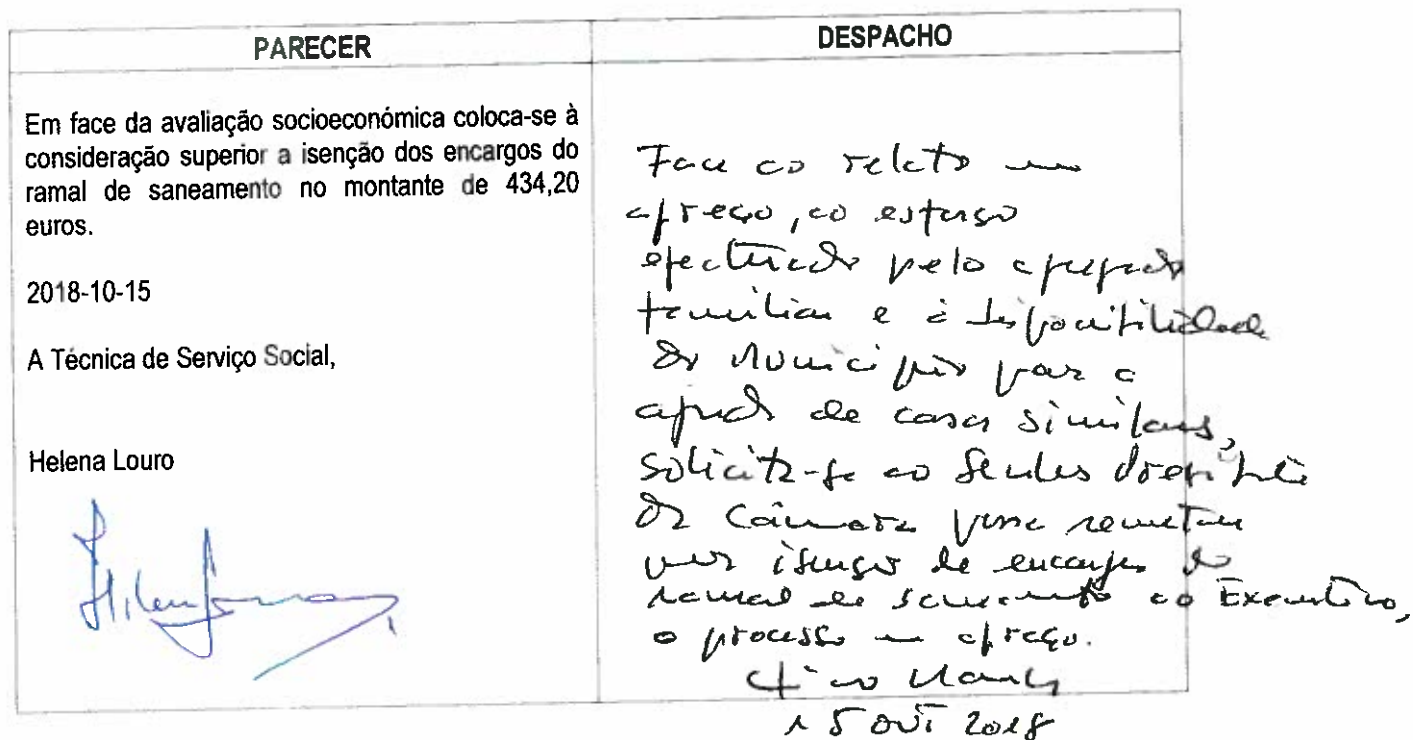 PARECER
Em face da avaliação socioeconómica coloca-se à
consideração superior a isenção dos encargos do
ramal de saneamento no montante de 434,20
euros.
2018-10-15
A Técnica de Serviço Social,
Helena Louro
DESPACHO
Face ao relato em
apreço, ao esforço
efectuado pelo agregado
familiar e à disponibilidade
do Município para a
ajuda de casos similares,
solicita-se ao Senhor Presidente
da Câmara para remeter
para isenção de encargos do
ramal de saneamento ao Executivo,
o processo em apreço.
15 OUT 2018